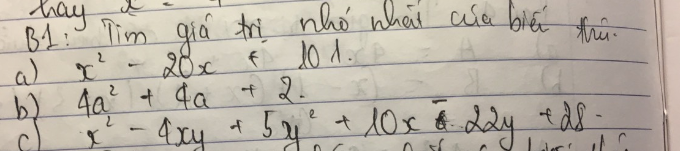 hay x =
B1: Tìm giá trị nhỏ nhất của biể thứ.
a) x² - 20x + 101.
b) 4a² + 4a + 2.
c) x² - 4xy + 5y² + 10x - 22y + 28.